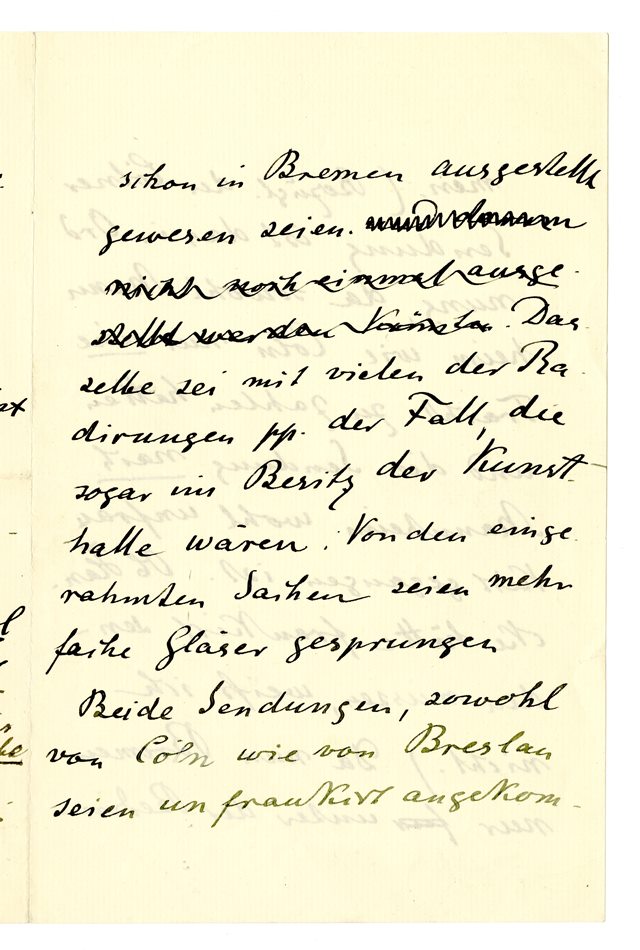 schon in Bremen ausgestellt
gewesen seien. und darum
nicht noch einmal ausge-
stellt werden könnten. Das
selbe sei mit vielen der Ra-
dirungen pp. der Fall, die
sogar im Besitz der Kunst-
halle wären. Von den einge-
rahmten Sachen seien mehr
fache Gläser gesprungen
Beide Sendungen, sowohl
von Cöln wie von Breslau
seien unfrankirt angekom-